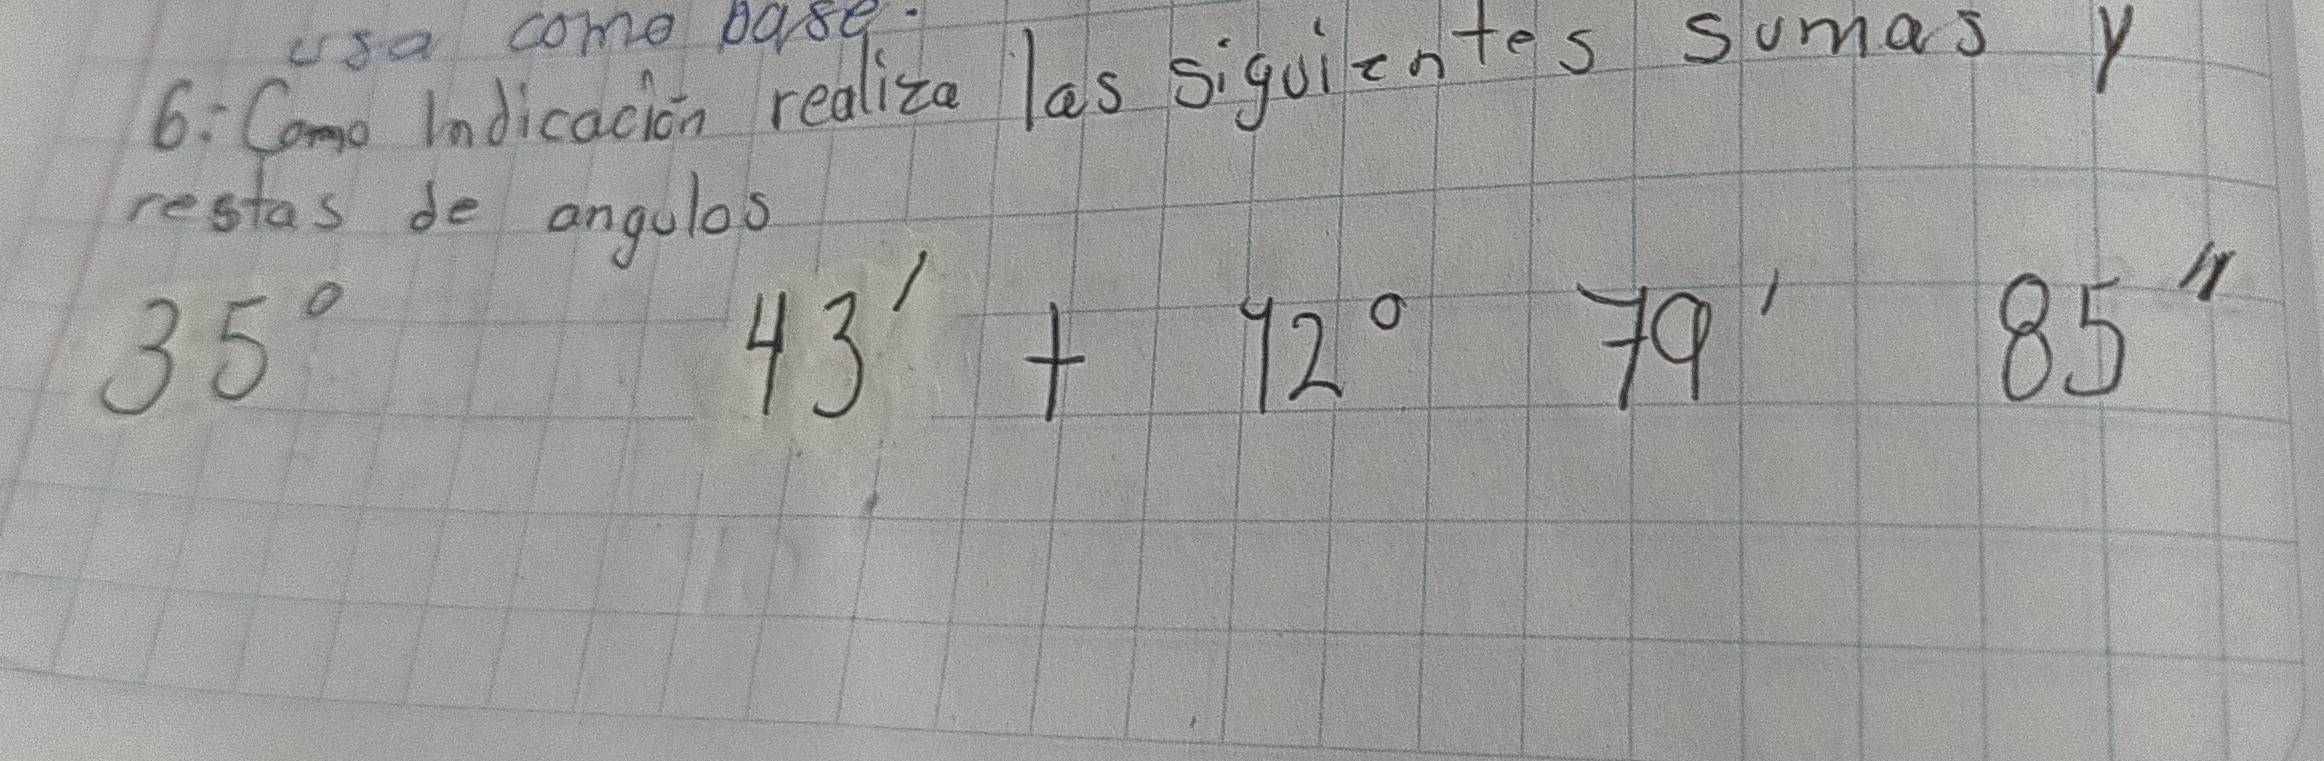 usa como base.
6:- Como Indicación realiza las siguientes sumas y
restas de angulos
35° 43' + 42° 79' 85"